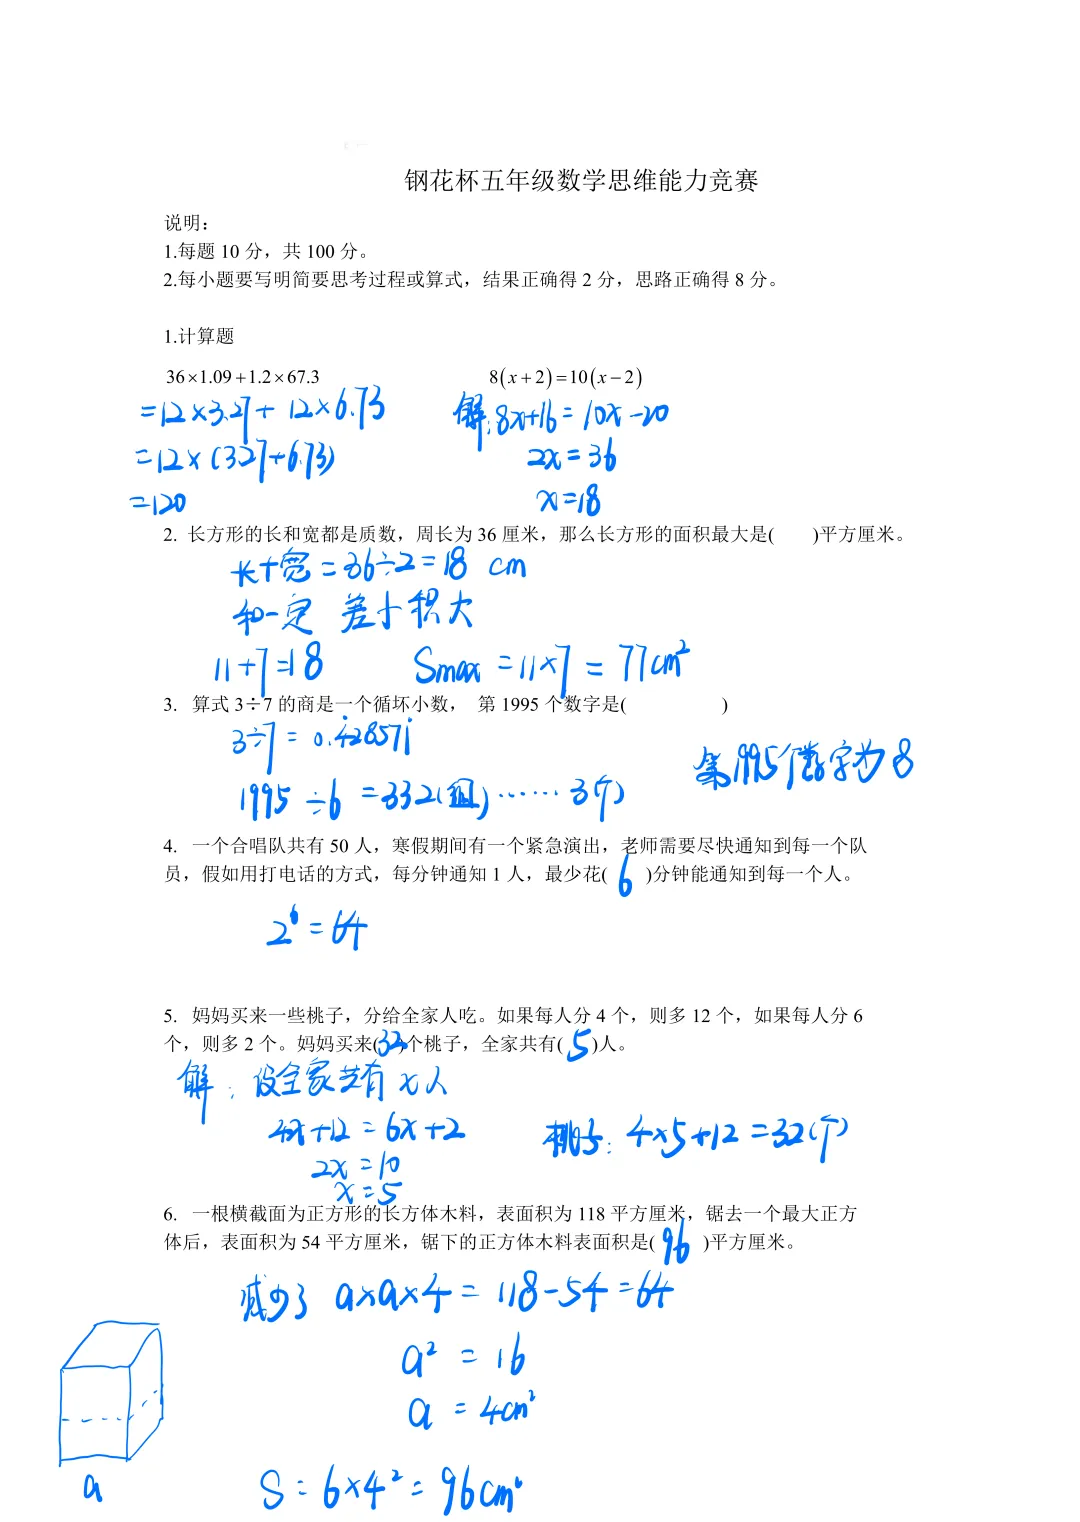 钢花杯五年级数学思维能力竞赛
说明：
1.每题 10 分，共 100 分。
2.每小题要写明简要思考过程或算式，结果正确得 2 分，思路正确得 8 分。
1.计算题
36×1.09+1.2×67.3
8(x+2)=10(x−2)
=12×3.27+12×6.73
解:8x+16=10x-20
=12×(3.27+6.73)
2x=36
=120
x=18
2. 长方形的长和宽都是质数，周长为 36 厘米，那么长方形的面积最大是( )平方厘米。
长+宽=36÷2=18 cm
和一定 差小积大
11+7=18 Smax=11×7=77cm²
3. 算式 3÷7 的商是一个循坏小数， 第 1995 个数字是( )
3÷7=0.4̇28571̇
第1995个数字为8
1995÷6=332(组)……3(个)
4. 一个合唱队共有 50 人，寒假期间有一个紧急演出，老师需要尽快通知到每一个队
员，假如用打电话的方式，每分钟通知 1 人，最少花( 6 )分钟能通知到每一个人。
2⁶=64
5. 妈妈买来一些桃子，分给全家人吃。如果每人分 4 个，则多 12 个，如果每人分 6
个，则多 2 个。妈妈买来(32)个桃子，全家共有( 5 )人。
解：设全家共有x人
4x+12=6x+2
桃子：4×5+12=32(个)
2x=10
x=5
6. 一根横截面为正方形的长方体木料，表面积为 118 平方厘米，锯去一个最大正方
体后，表面积为 54 平方厘米，锯下的正方体木料表面积是( 96 )平方厘米。
减少了 a×a×4=118-54=64
a²=16
a=4cm²
a
S=6×4²=96cm²